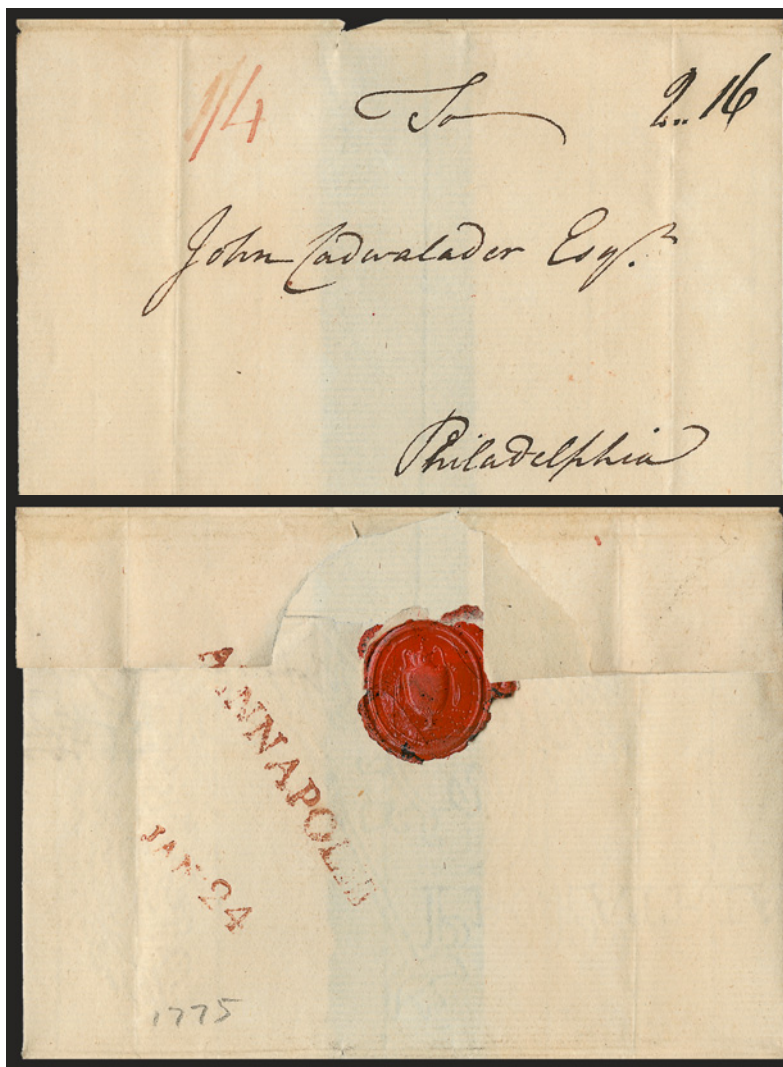 1/4 To 2..16
John Cadwalader Esqr.
Philadelphia
ANNAPOLIS
JAN 24
1775